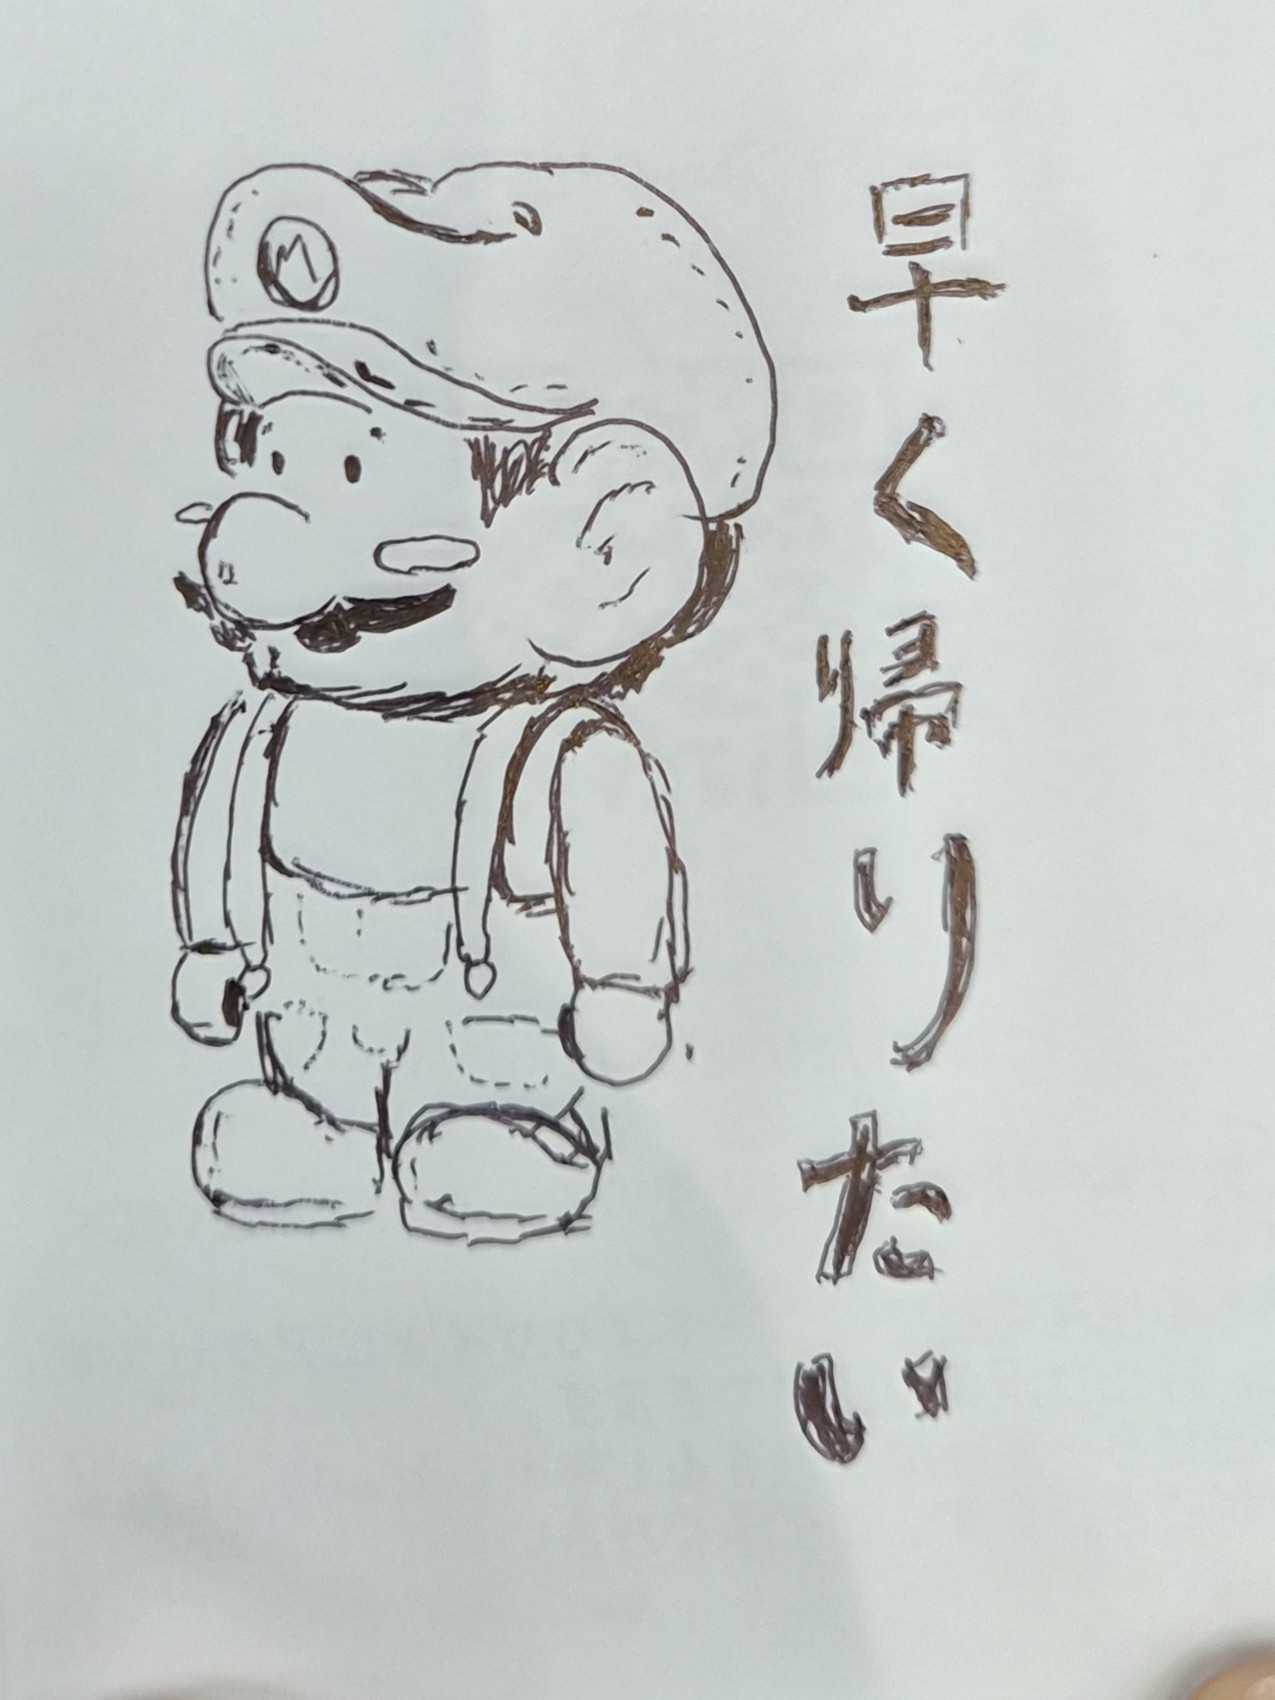 早く帰りたい
M